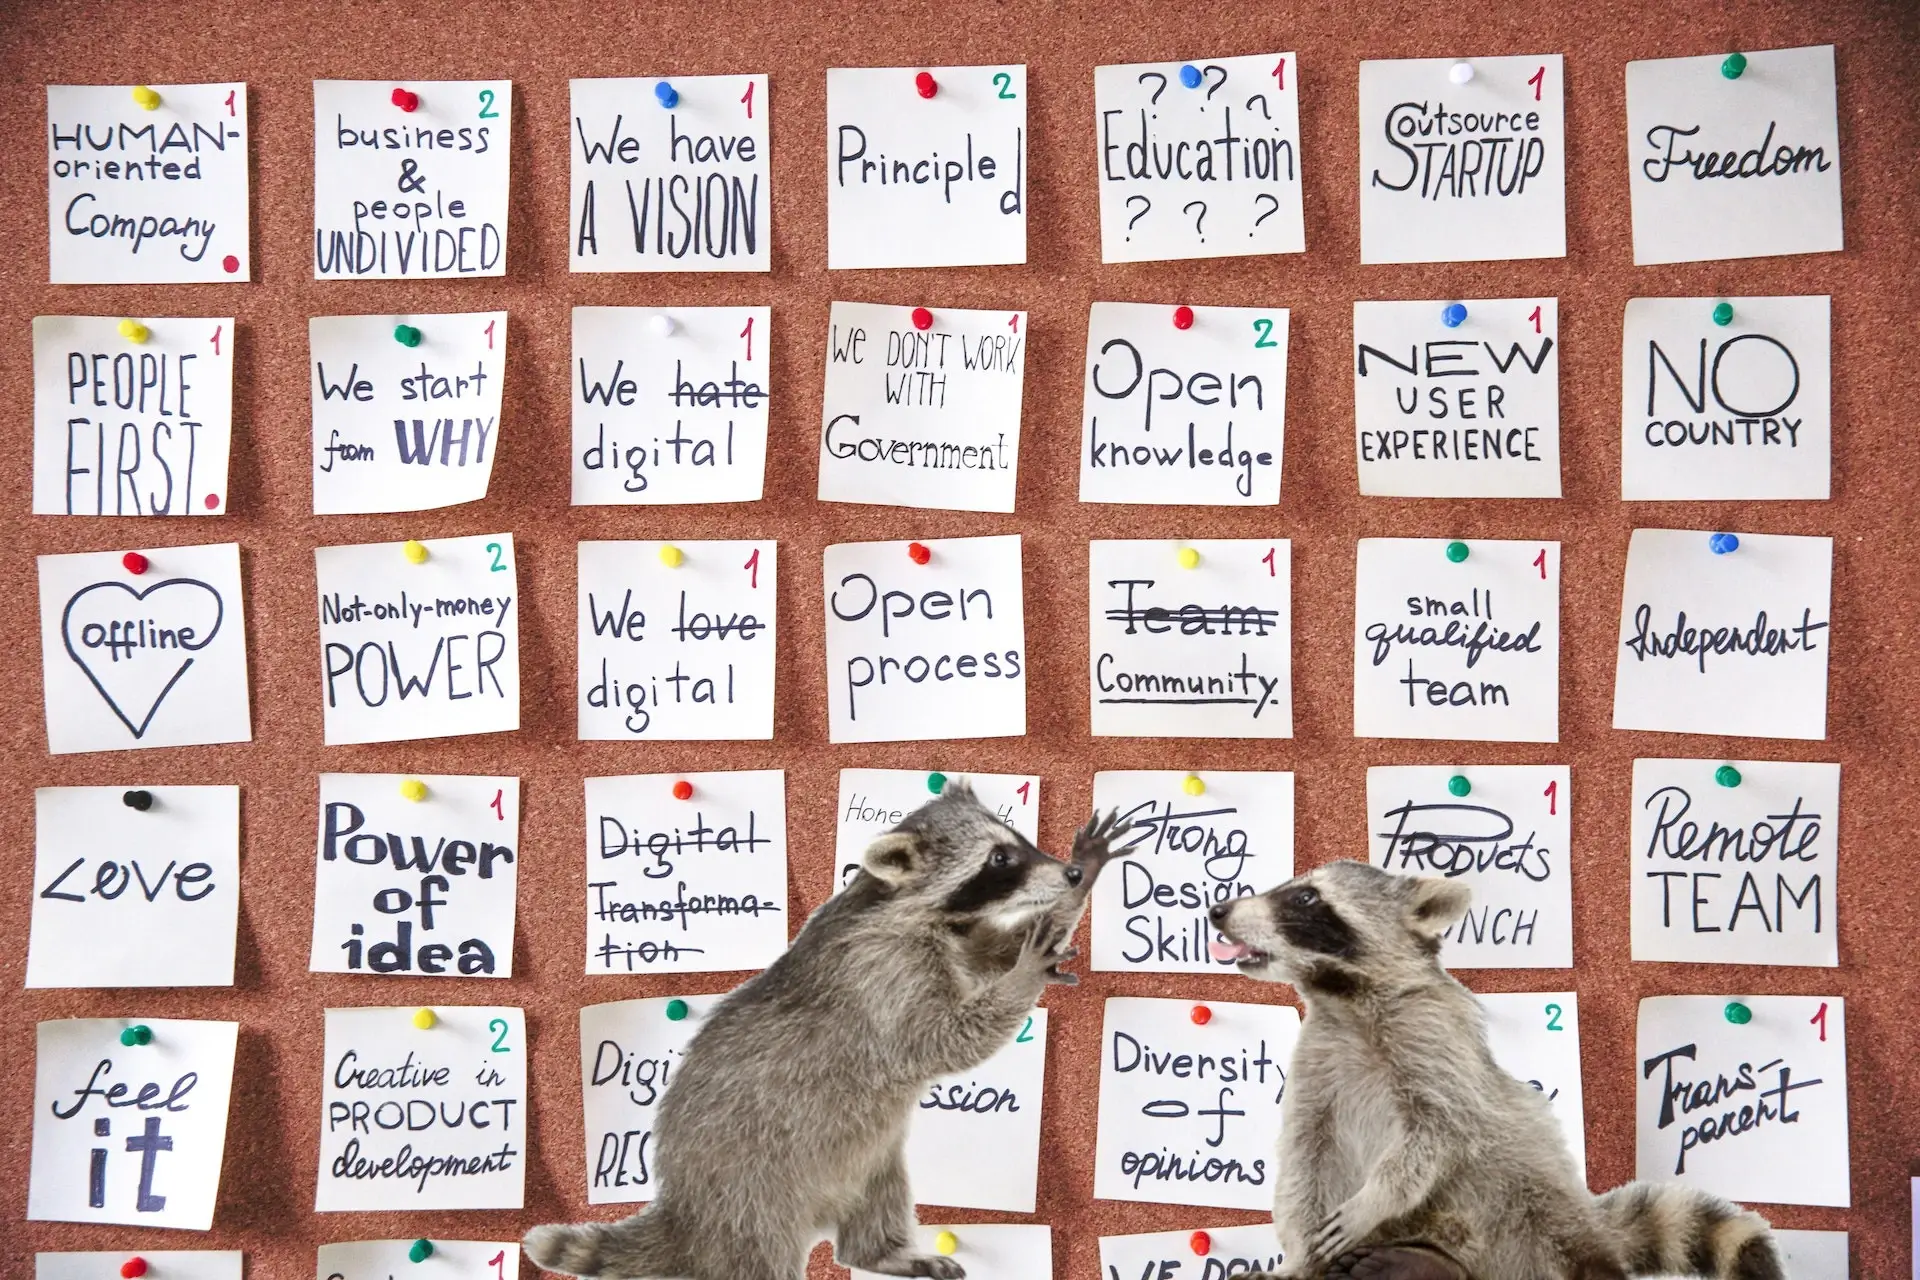 1
HUMAN-
oriented
Company
2
business
&
people
UNDIVIDED
1
We have
A VISION
2
Principled
1
? ? ?
Education
? ? ?
1
Outsource
STARTUP
Freedom
1
PEOPLE
FIRST
1
We start
from WHY
1
We hate
digital
1
WE DON'T WORK
WITH
Government
2
Open
knowledge
1
NEW
USER
EXPERIENCE
NO
COUNTRY
offline
2
Not-only-money
POWER
1
We love
digital
Open
process
1
Team
Community
1
small
qualified
team
Independent
Love
1
Power
of
idea
Digital
Transforma-
tion
1
Strong
Design
Skills
1
PRODUCTS
REMOTE
TEAM
feel
it
2
Creative in
PRODUCT
development
2
Diversity
of
opinions
2
1
Trans-
parent
1
WE DON'